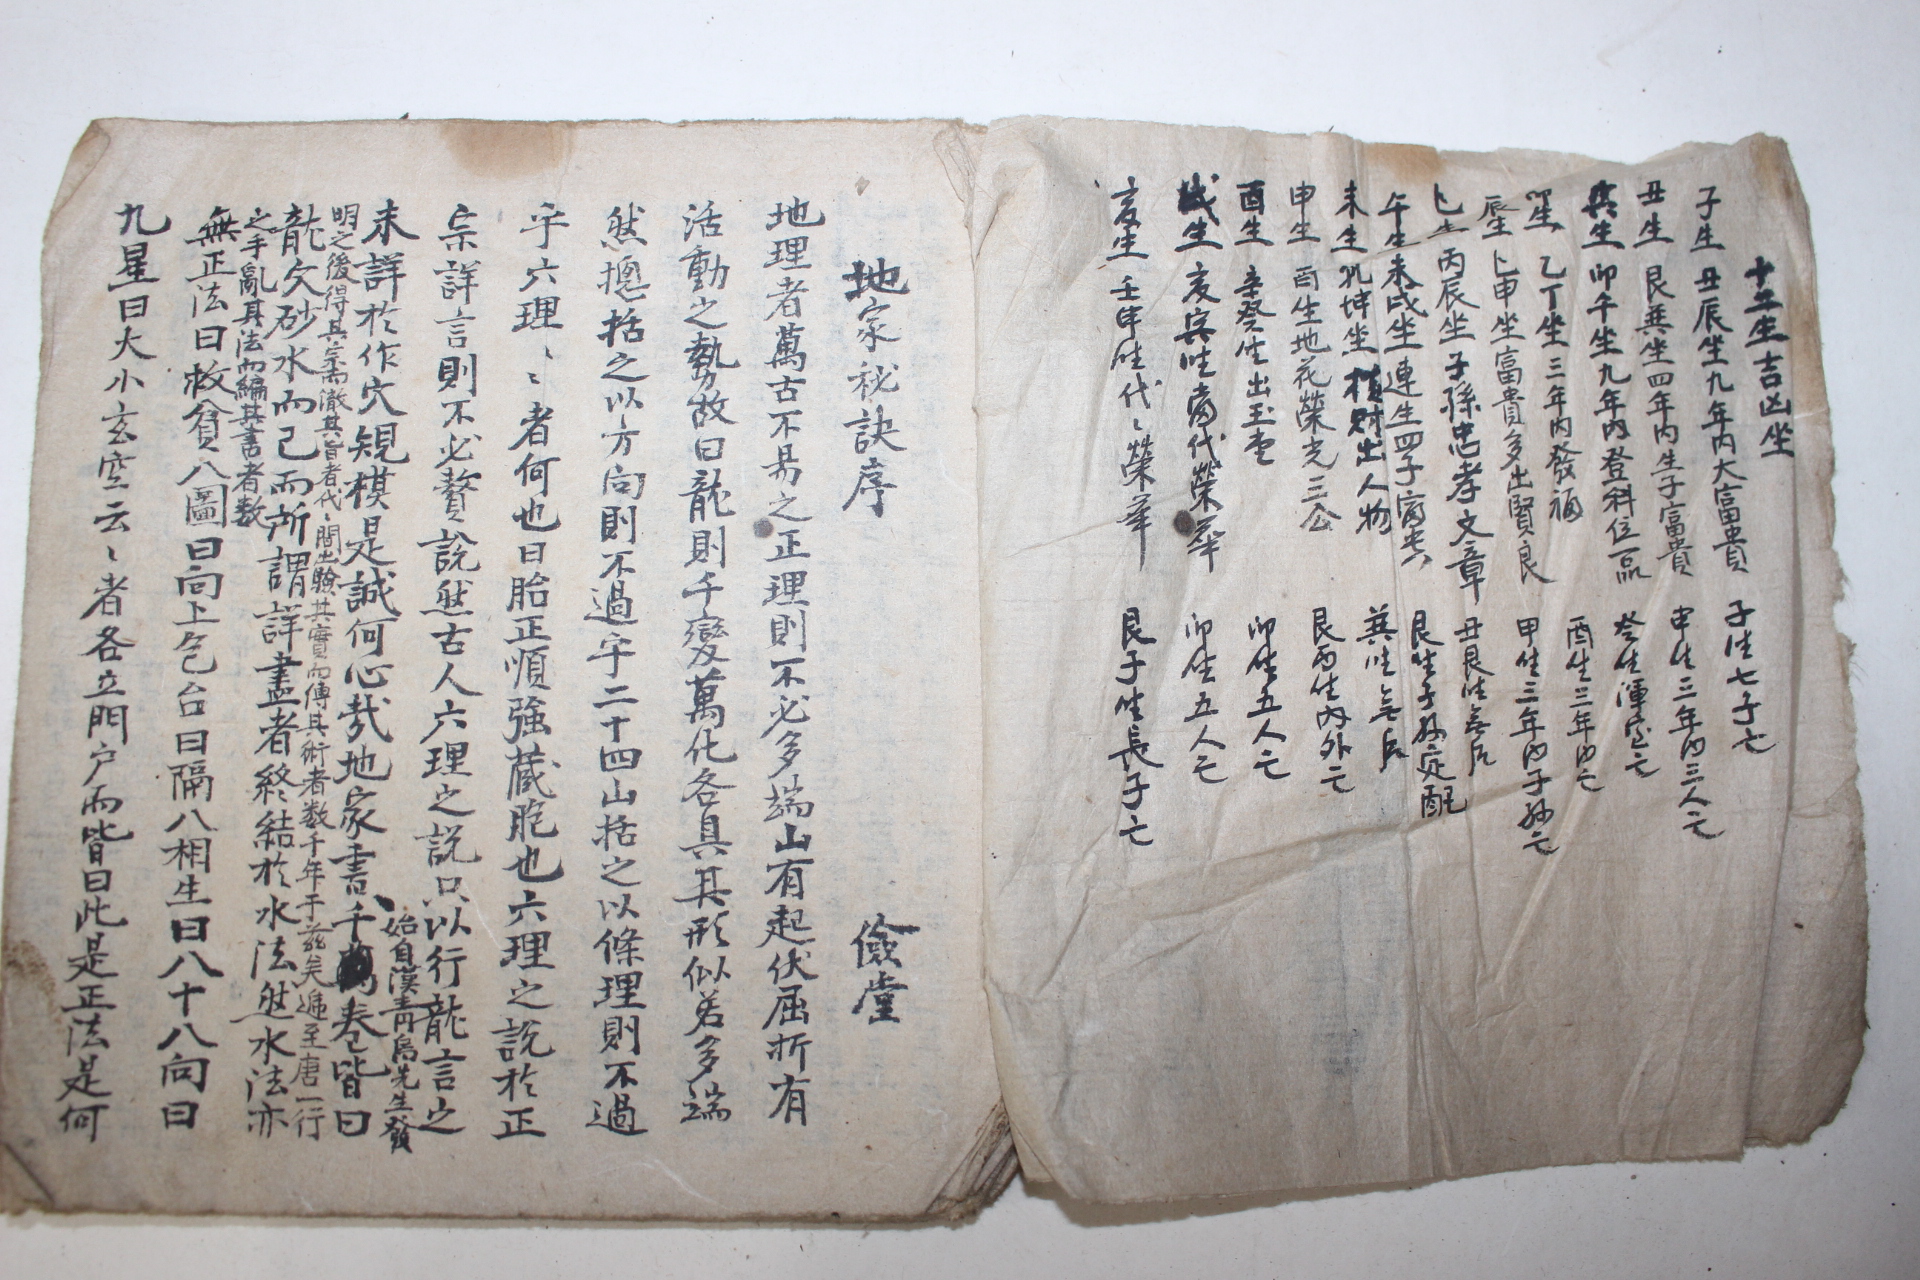 十二生吉凶坐
子生 丑辰坐九年內大富貴 子生七子亡
丑生 艮巽坐四年內生子富貴 申生三年內三人亡
寅生 卯午坐九年內登科位一品 癸生渾室亡
卯生 乙丁坐三年內發福 酉生三年內亡
辰生 巳申坐富貴多出賢良 甲生三年內子孫亡
巳生 丙辰坐子孫忠孝文章 丑艮生無后
午生 未戌坐連生四子富貴 艮生子孫定配
未生 乾坤坐積財出人物 巽生無后
申生 酉生地花榮光三公 艮丙生內外亡
酉生 辛癸生出玉堂 卯生五人亡
戌生 亥寅生富代榮華 卯生五人亡
亥生 壬申生代〻榮華 艮子生長子亡
地家秘訣序 儉堂
地理者萬古不易之正理則不必多端山有起伏屈折有
活動之勢故曰龍則千變萬化各具其形似若多端
然摠括之以方向則不過乎二十四山括之以條理則不過
乎六理〻〻者何也曰胎正順強藏胞也六理之說於正
宗詳言則不必贅說然古人六理之說只以行龍言之
未詳於作穴規模是誠何心哉地家書千萬卷皆曰
始自漢靑烏先生發
明之後得其宗而澈其旨者代〻間出驗其實而傳其術者数千年于玆矣遞至唐一行
龍欠砂水而已而所謂詳盡者終結於水法然水法亦
之手亂其法而編其書者数
無正法曰救貧八圖曰向上乞台曰隔八相生曰八十八向曰
九星曰大小玄空云〻者各立門户而皆曰此是正法是何